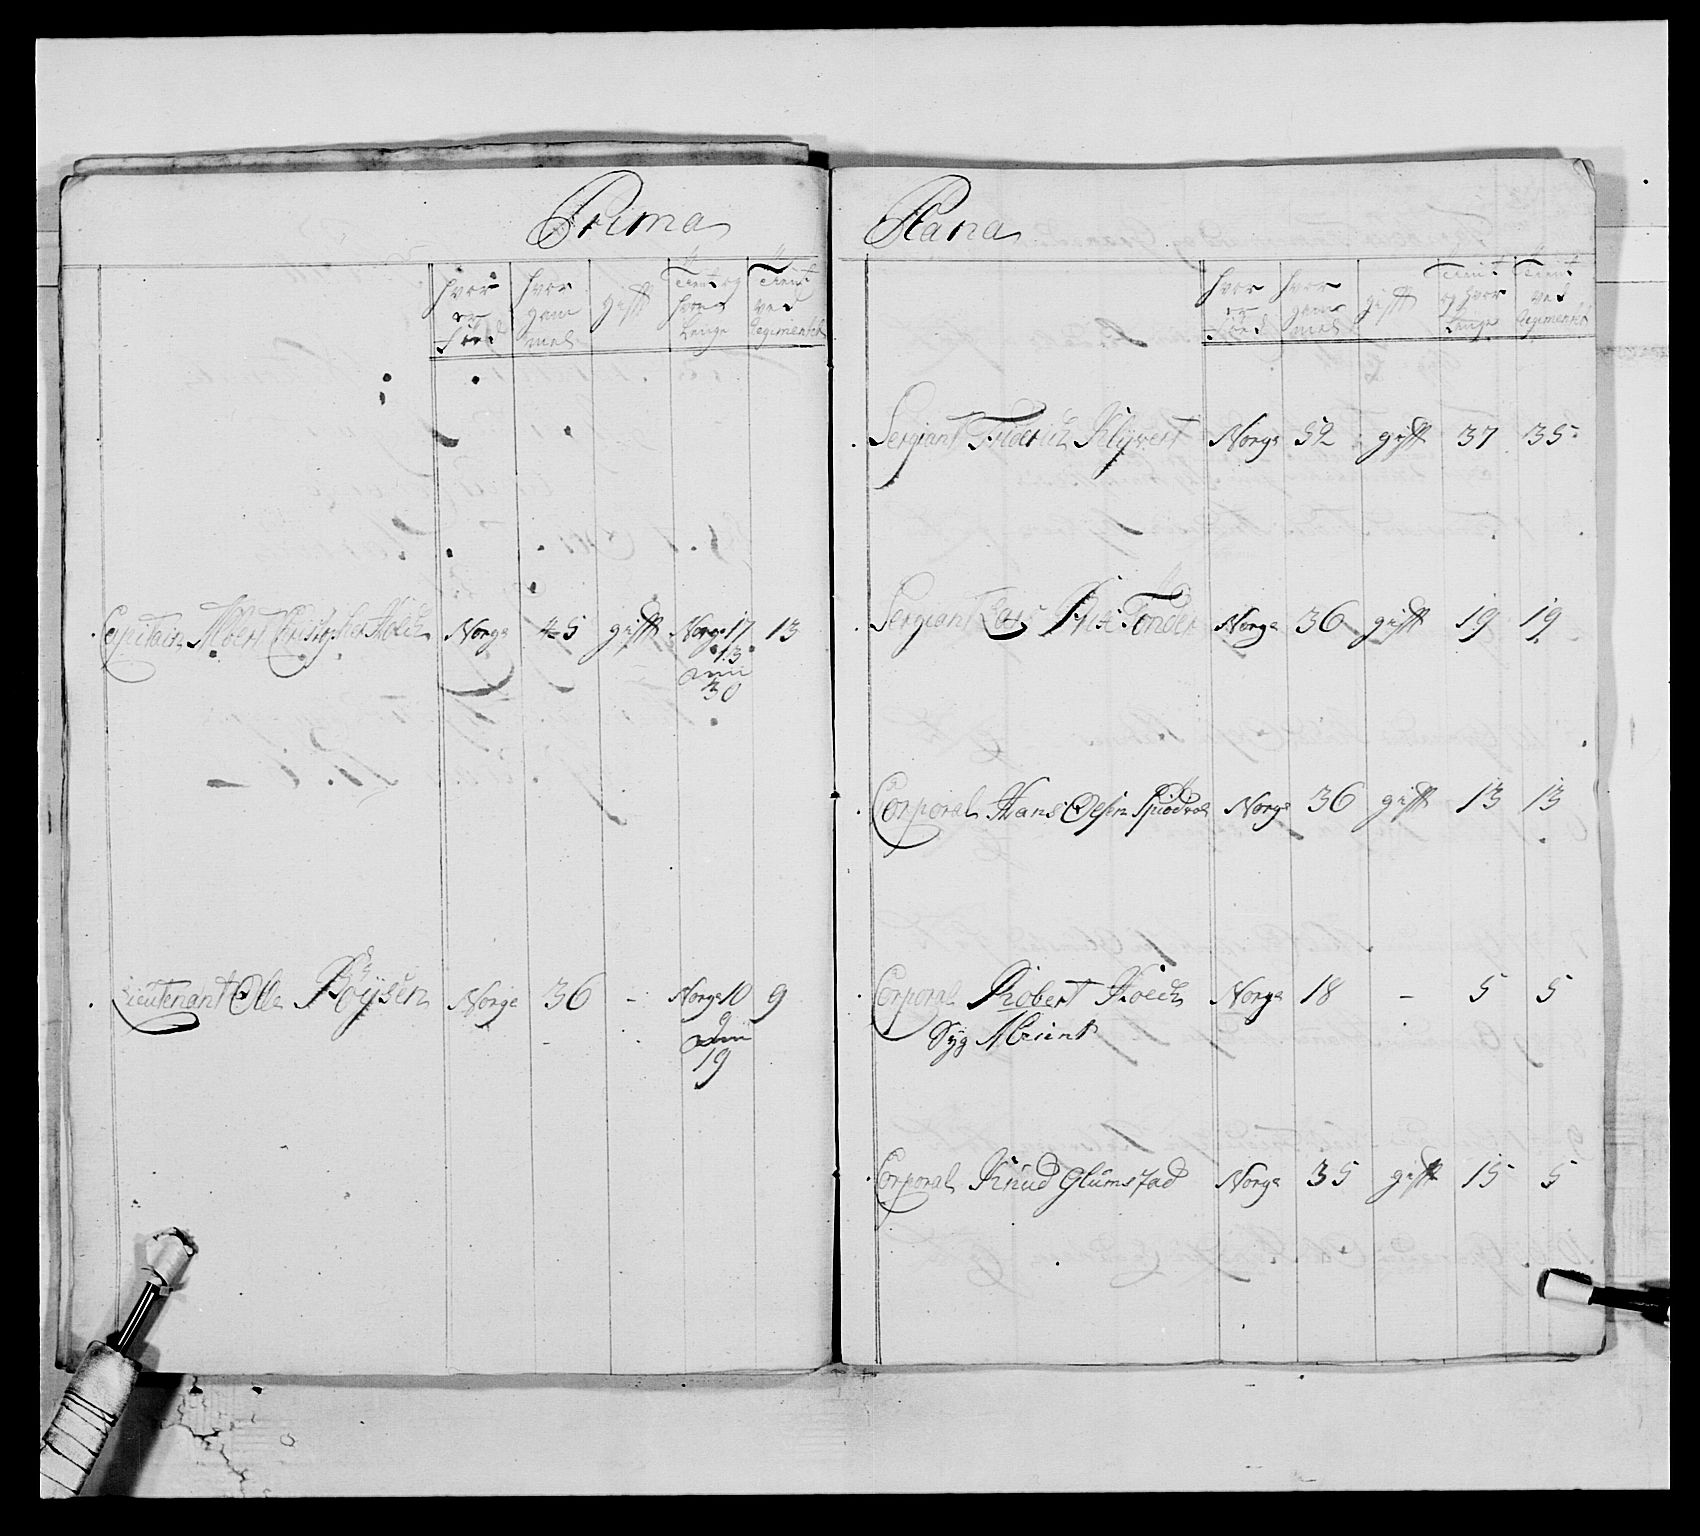 Prima
hvor er föed
hvor gam mel
gifft
Tient og hvor Lenge
Tient ved Regimentet
Capitain Albert Christopher Hoech Norge 45 gifft Norge 17 13
13
30
Lieutenant Olle Böysen Norge 36 - Norge 10 9
9
19
Plana
hvor er föed
hvor gam mel
gifft
Tient og hvor Lenge
Tient ved Regimentet
Sergiant Friderich Klÿvert Norge 52 gifft 37 35
Sergiant Lars Tönder Norge 36 gifft 19 19
Corporal Hans Olsen Norge 36 gifft 13 13
Corporal Robert Hoech Norge 18 - 5 5
Syg
Corporal Knud Glumstad Norge 35 gifft 15 5